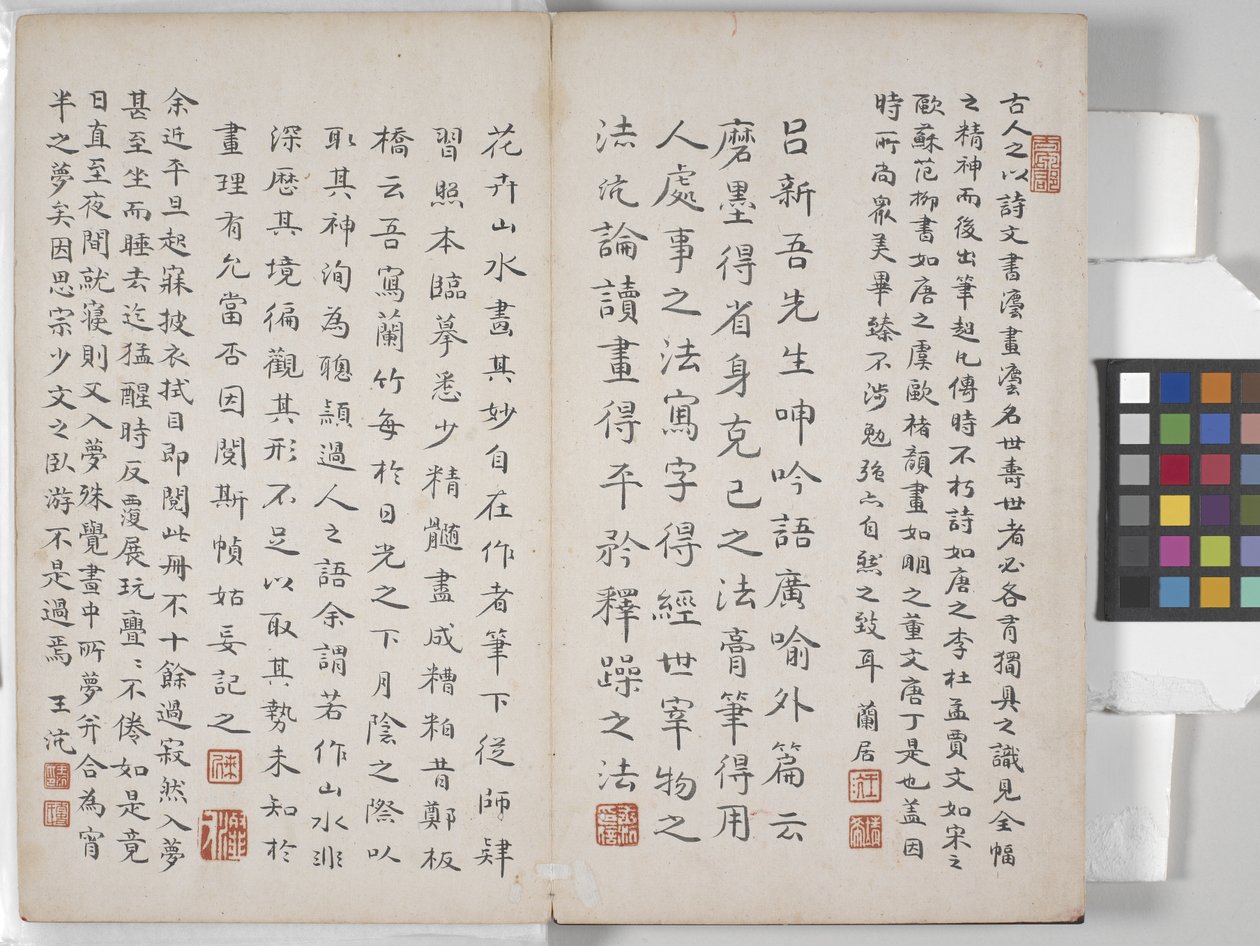 古人之以詩文書灋畫灋名世壽世者必各有獨具之識見全幅
之精神而後出筆超凡傳時不朽詩如唐之李杜孟賈文如宋之
歐蘇范柳書如唐之虞歐褚顏畫如明之董文唐丁是也盖因
時所尚眾美畢臻不涉勉強亦自然之致耳 蘭居
呂新吾先生呻吟語廣喻外篇云
磨墨得省身克己之法膏筆得用
人處事之法寫字得經世宰物之
法沇論讀畫得平矜釋躁之法
花卉山水畫其妙自在作者筆下從師肄
習照本臨摹悉少精髓盡成糟粕昔鄭板
橋云吾寫蘭竹每於日光之下月陰之際以
取其神洵為聰頴過人之語余謂若作山水非
深歷其境徧觀其形不足以取其勢未知於
畫理有允當否因閱斯幀姑妄記之
余近平旦起寐披衣拭目即閱此冊不十餘過寂然入夢
甚至坐而睡去迄猛醒時反覆展玩亹〻不倦如是竟
日直至夜間就寢則又入夢殊覺畫中所夢并合為宵
半之夢矣因思宗少文之臥游不是過焉 王沇